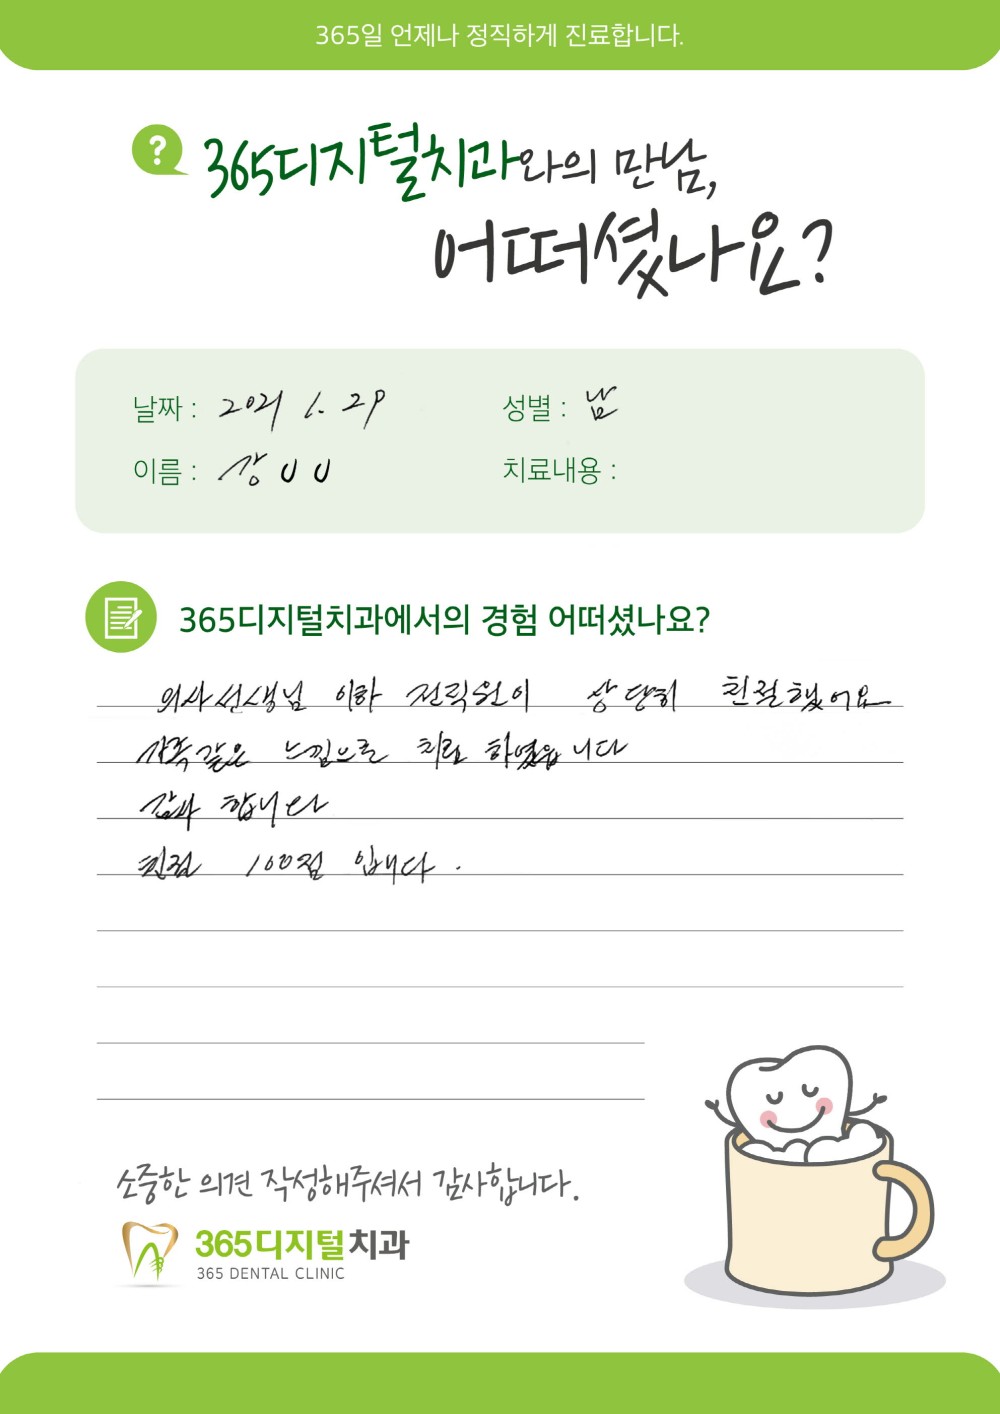 365일 언제나 정직하게 진료합니다.
?
365디지털치과와의 만남,
어떠셨나요?
날짜 : 2021 1. 29
성별 : 남
이름 : 강 U U
치료내용 :
365디지털치과에서의 경험 어떠셨나요?
의사선생님 이하 전직원이 상당히 친절했어요
가족같은 느낌으로 치료 하였습니다
감사 합니다
친절 100점 입니다.
소중한 의견 작성해주셔서 감사합니다.
365디지털치과
365 DENTAL CLINIC